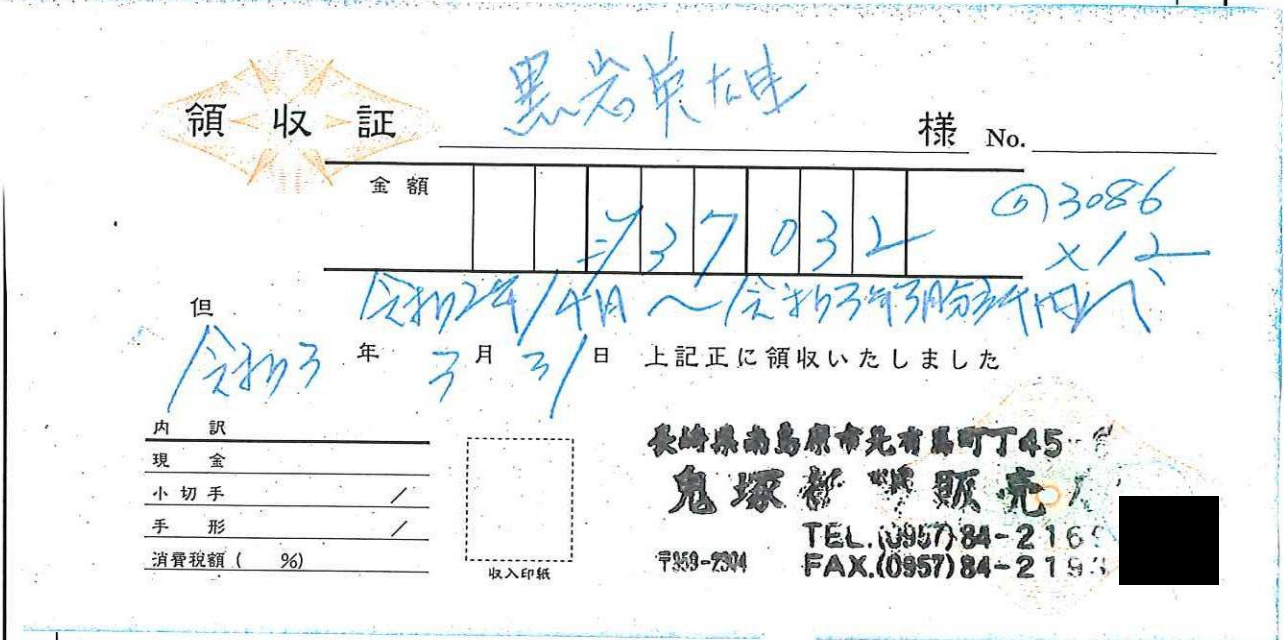 領収証
黒岩英雄 様 No.
金額 ¥37032
@3086
×12
但 令和2年4月～令和3年3月分
令和3年3月31日 上記正に領収いたしました
内訳
現金
小切手 /
手形 /
消費税額( %)
収入印紙
長崎県南島原市北有馬町丁45-
鬼塚新聞販売
TEL.(0957)84-216
〒859-2304 FAX.(0957)84-2193